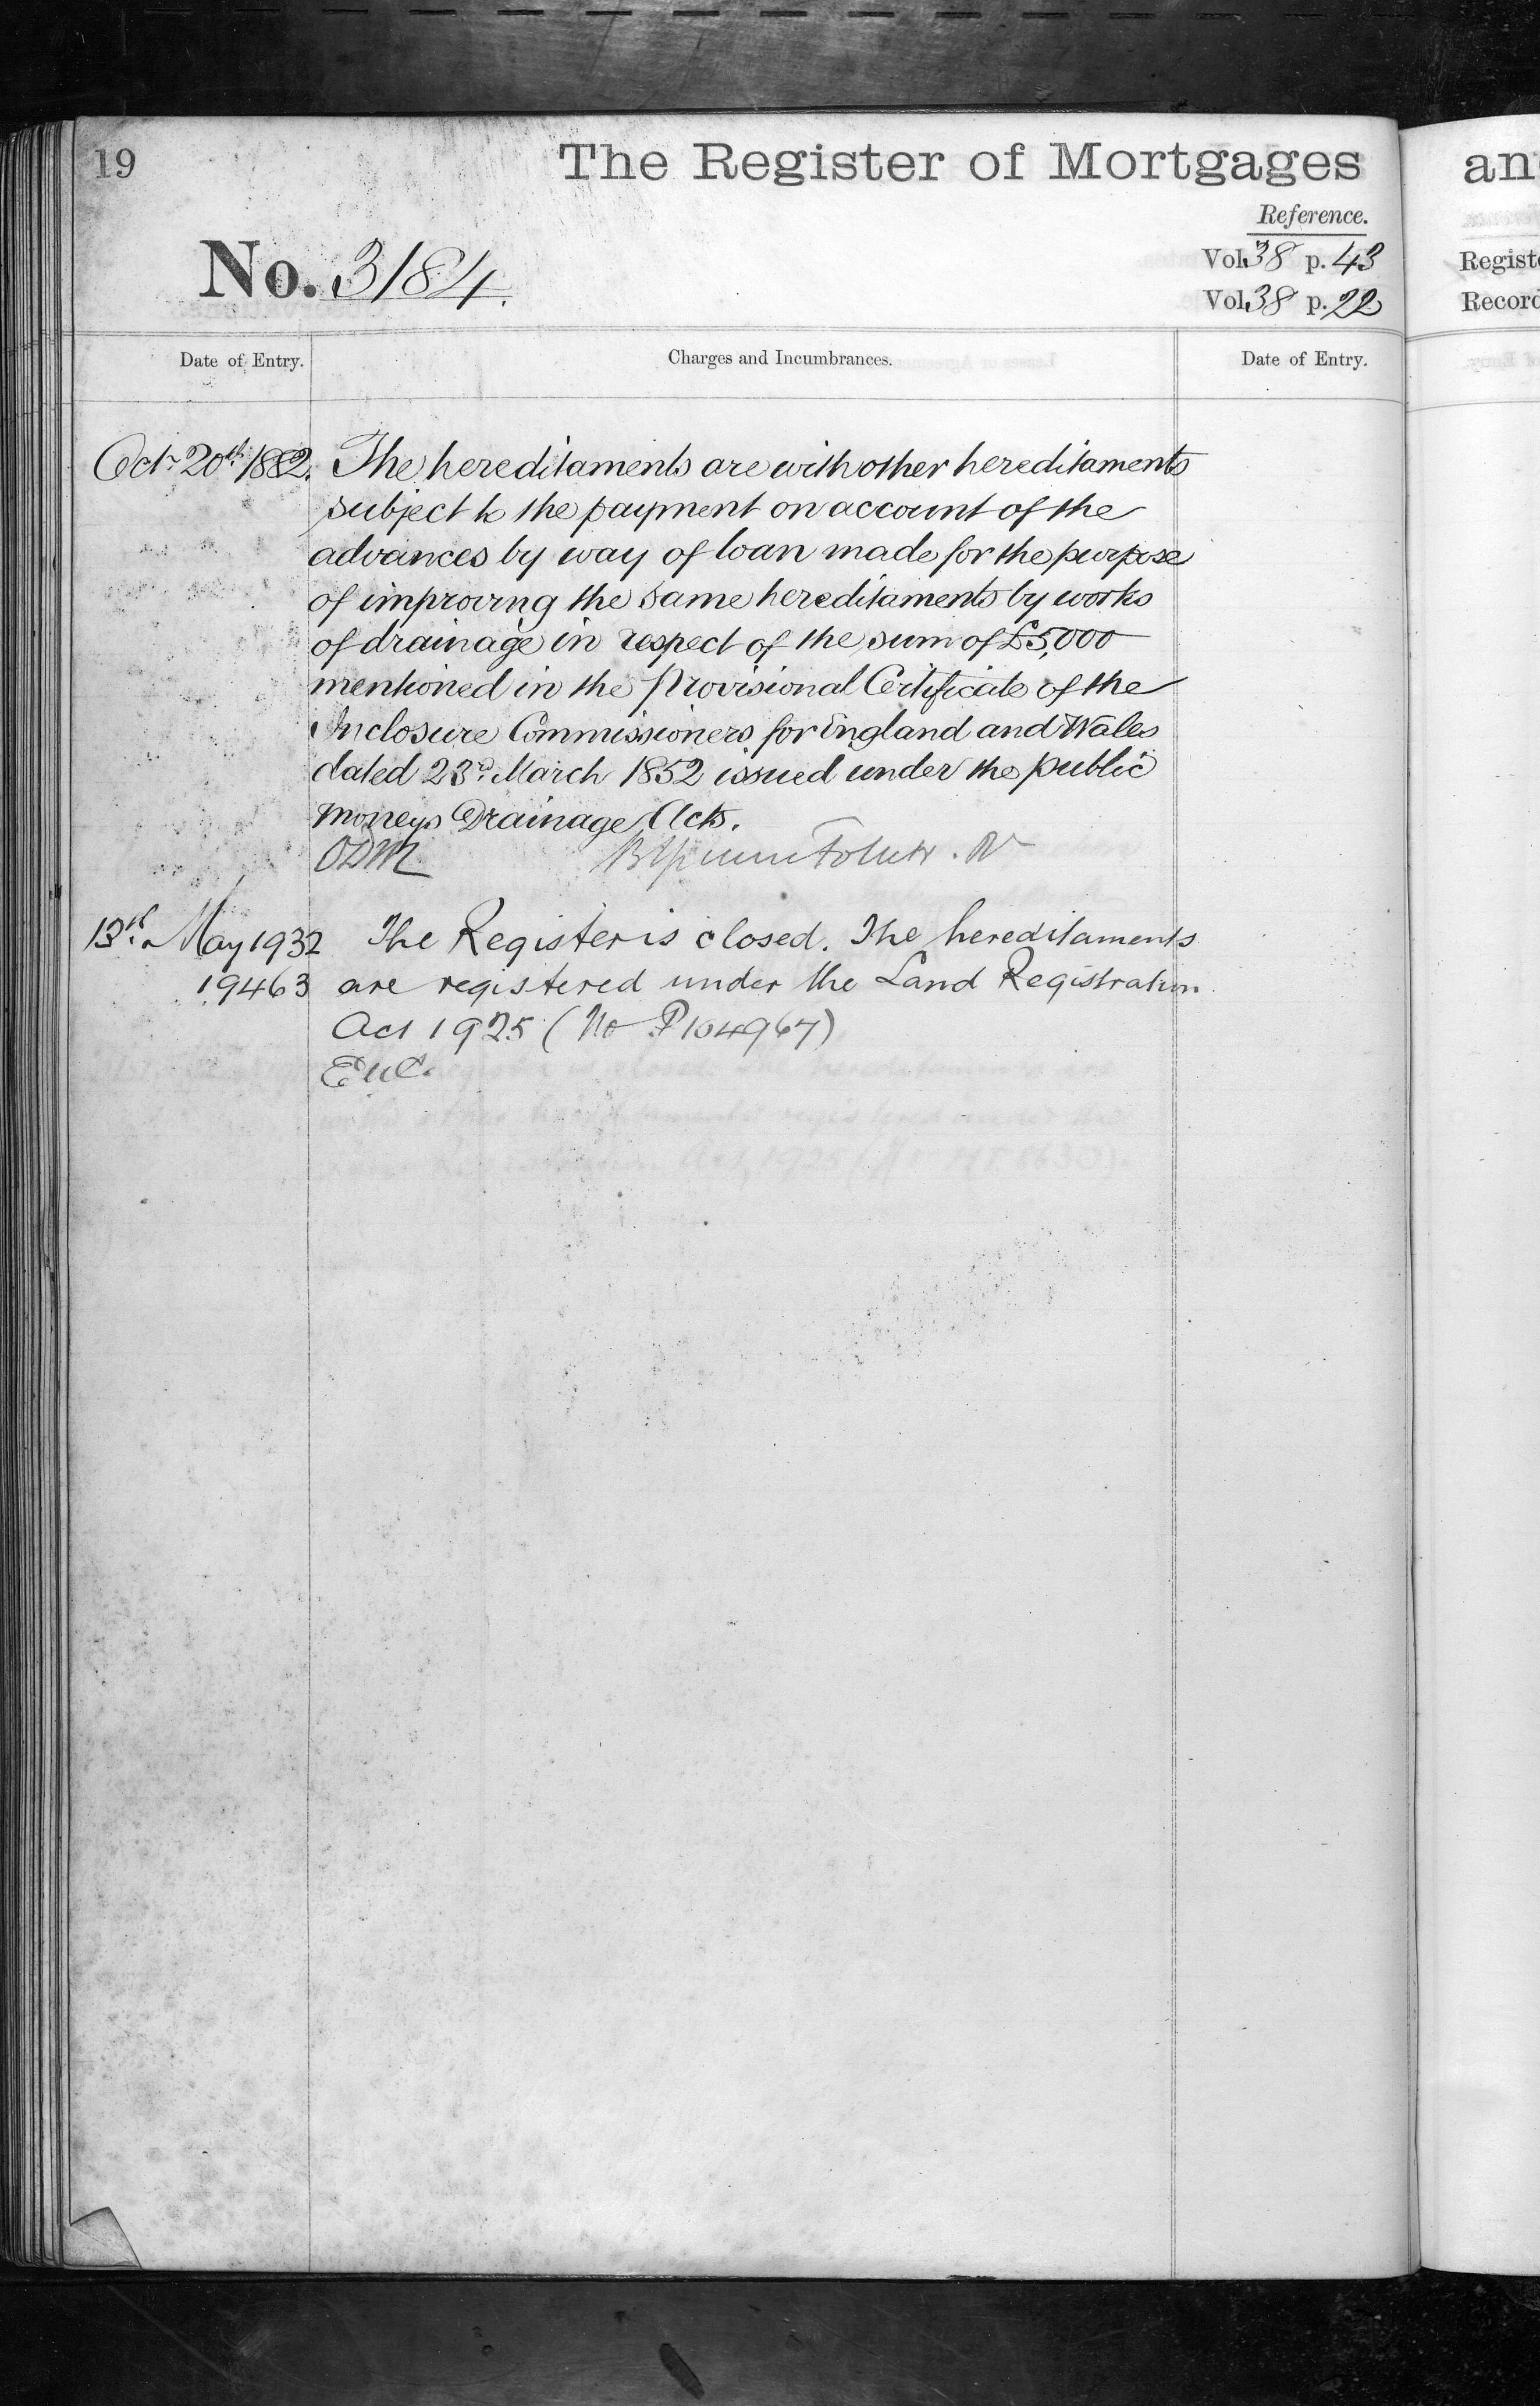 19
The Register of Mortgages
an
Reference.
No. 3184.
Vol. 38 p. 43
Vol. 38 p. 22
Regist
Record
Date of Entry.
Charges and Incumbrances.
Date of Entry.
Octr 20th 1882. The hereditaments are with other hereditaments
subject to the payment on account of the
advances by way of loan made for the purpose
of improving the same hereditaments by works
of drainage in respect of the sum of £5,000
mentioned in the Provisional Certificate of the
Inclosure Commissioners for England and Wales
dated 23d. March 1852 issued under the public
moneys Drainage Acts.
ODM
13th May 1932 The Register is closed. The hereditaments
19463 are registered under the Land Registration
Act 1925 (No P104967)